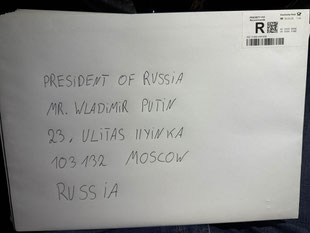 R
PRESIDENT OF RUSSIA
MR. WLADIMIR PUTIN
23, ULITAS IIYINKA
103132 MOSCOW
RUSSIA